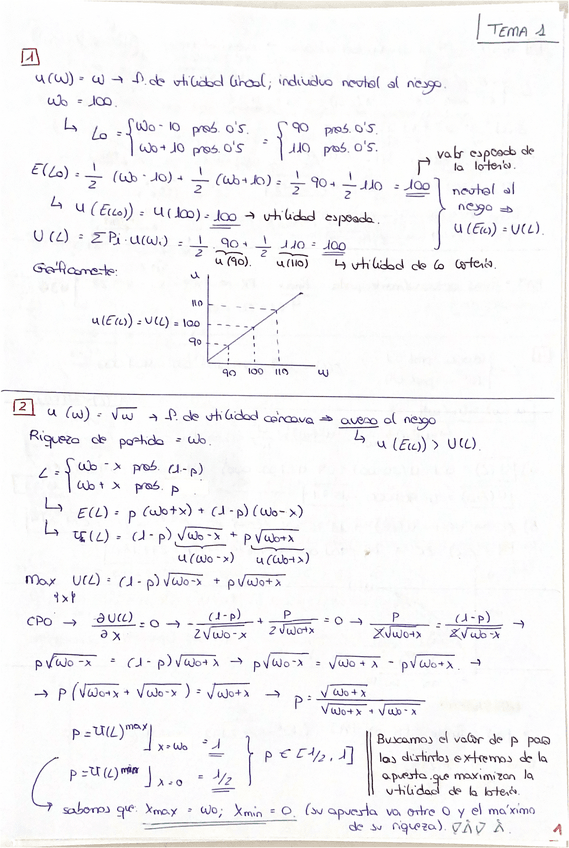 TEMA 1
1
u(W) = w → f. de utilidad lineal; individuo neutral al riesgo.
W0 = 100.
↳ L0 = { W0 - 10 prob. 0'5. W0 + 10 prob. 0'5. = { 90 prob. 0'5. 110 prob. 0'5.
valor esperado de la lotería.
E(L0) = 1/2 (W0 - 10) + 1/2 (W0 + 10) = 1/2 90 + 1/2 110 = 100
↳ u(E(L0)) = u(100) = 100 → utilidad esperada.
neutral al
riesgo ⇒
u(E(L)) = U(L).
U(L) = ΣPi·u(Wi) = 1/2 · 90 + 1/2 110 = 100
u(90). u(110) ↳ utilidad de la lotería.
Gráficamente:
u
110
u(E(L)) = U(L) = 100
90
90 100 110 w
2
u(w) = √w → f. de utilidad cóncava ⇒ averso al riesgo
Riqueza de partida = W0. ↳ u(E(L)) > U(L).
L = { W0 - x prob. (1-p) W0 + x prob. p
↳ E(L) = p (W0+x) + (1-p) (W0-x)
↳ U(L) = (1-p) √W0-x + p √W0+x
u(W0-x) u(W0+x)
Max U(L) = (1-p) √W0-x + p √W0+x
{x}
CPO → ∂U(L)/∂x = 0 → - (1-p)/2√W0-x + P/2√W0+x = 0 → P/2√W0+x = (1-p)/2√W0-x →
p√W0-x = (1-p)√W0+x → p√W0-x = √W0+x - p√W0+x. →
→ p(√W0+x + √W0-x) = √W0+x → p = √W0+x / √W0+x + √W0-x
p = U(L)max ]x=W0 = 1
p = U(L)min ]x=0 = 1/2
p ∈ [1/2, 1]
Buscamos el valor de p para
los distintos extremos de la
apuesta que maximizan la
utilidad de la lotería.
↳ sabemos que: Xmax = W0; Xmin = 0. (su apuesta va entre 0 y el máximo
de su riqueza).
1